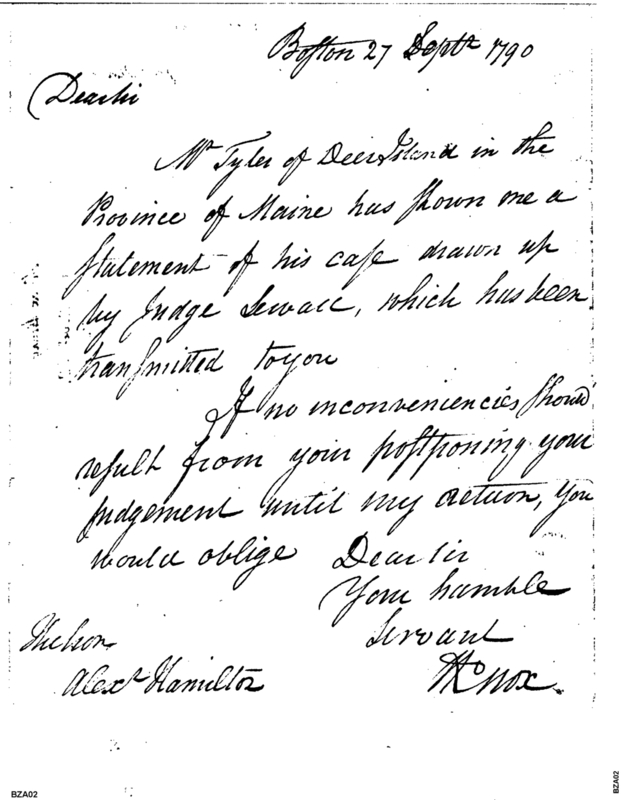 Boston 27 Septr 1790
Dear sir
Mr Tyler of Deer Island in the
Province of Maine has shown me a
statement of his case drawn up
by Judge Sewall, which has been
transmitted to you
If no inconveniencies should
result from your postponing your
judgement until my return, you
would oblige Dear sir
Your humble
servant
HKnox.
The hon.
Alexr Hamilton
BZA02
BZA02